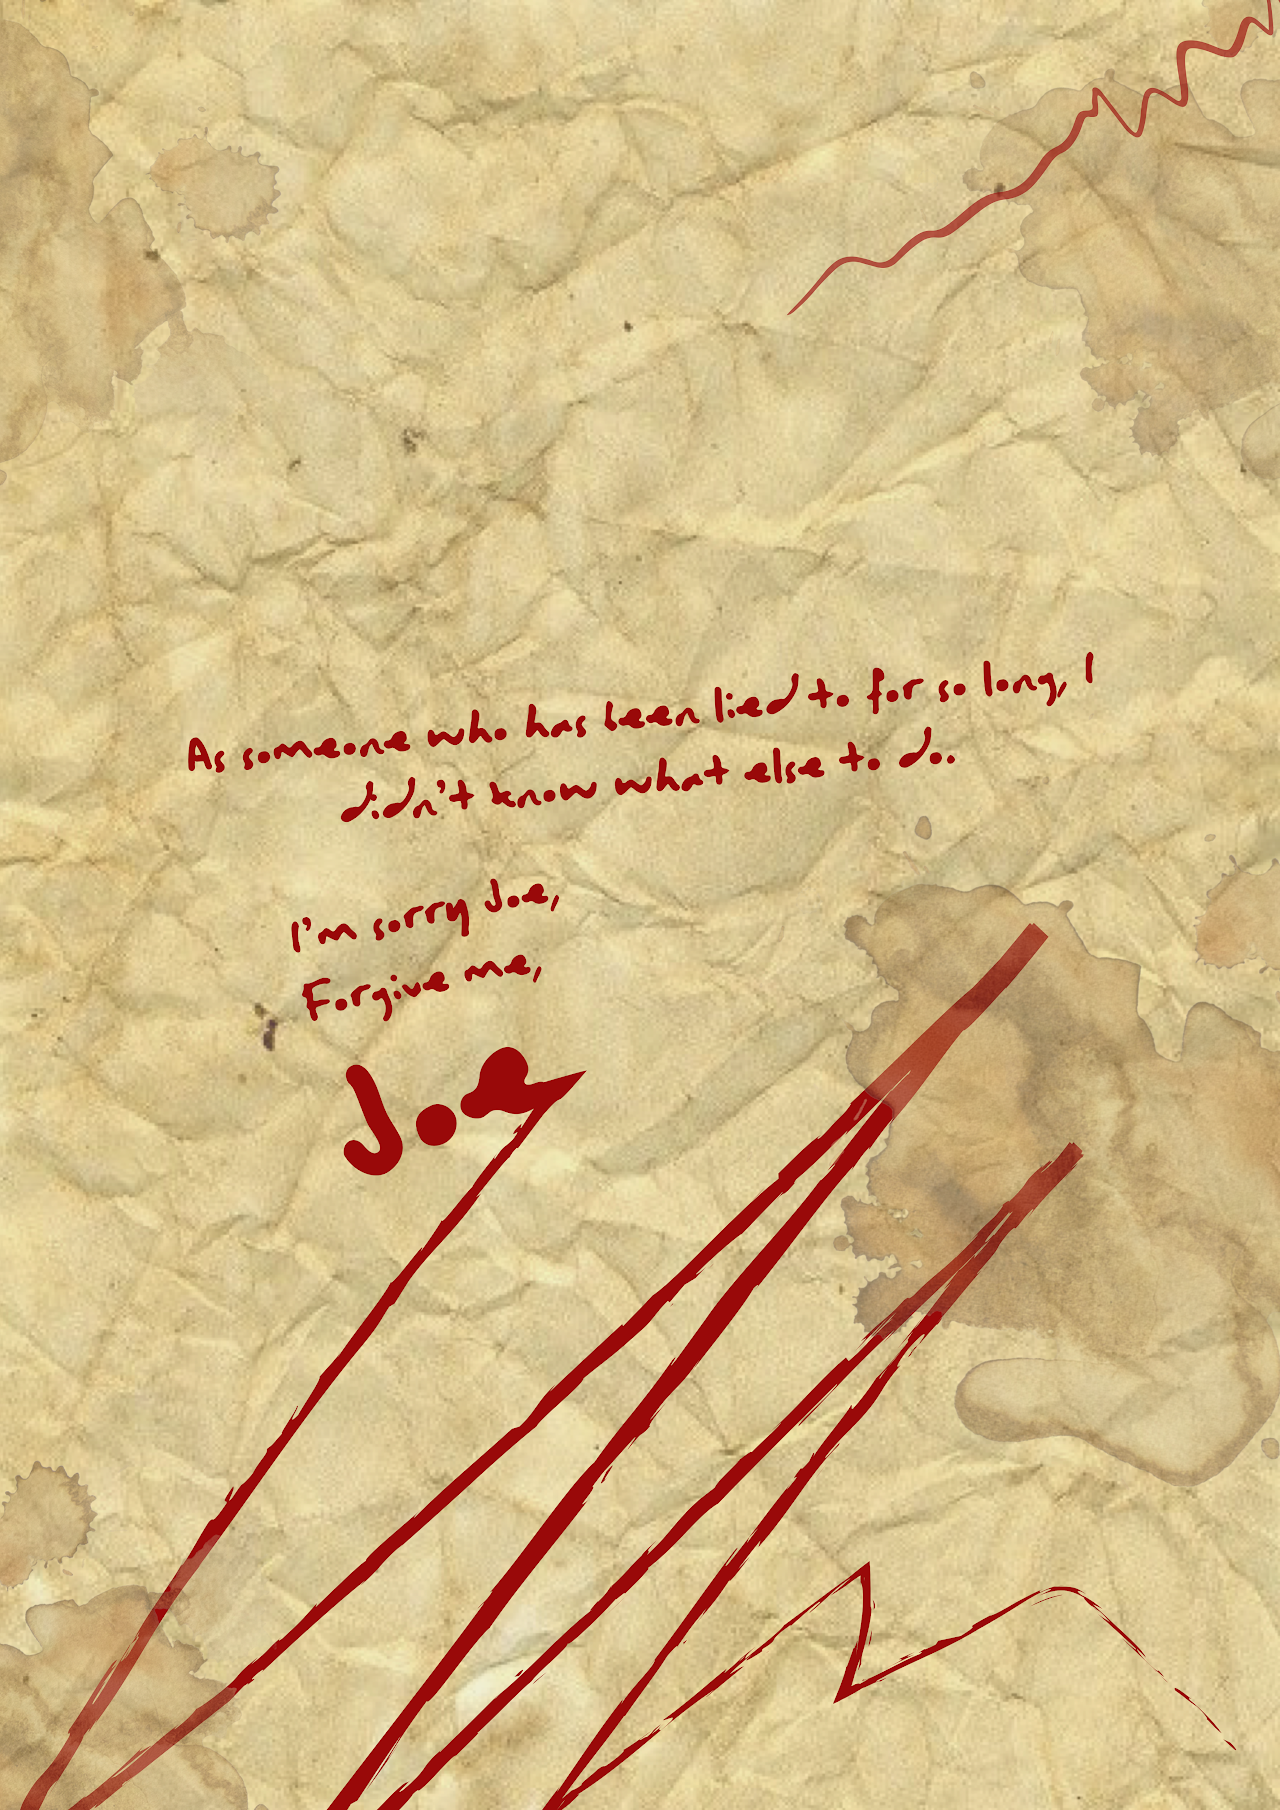 As someone who has been lied to for so long, I
didn't know what else to do.
I'm sorry Joe,
Forgive me,
Joe